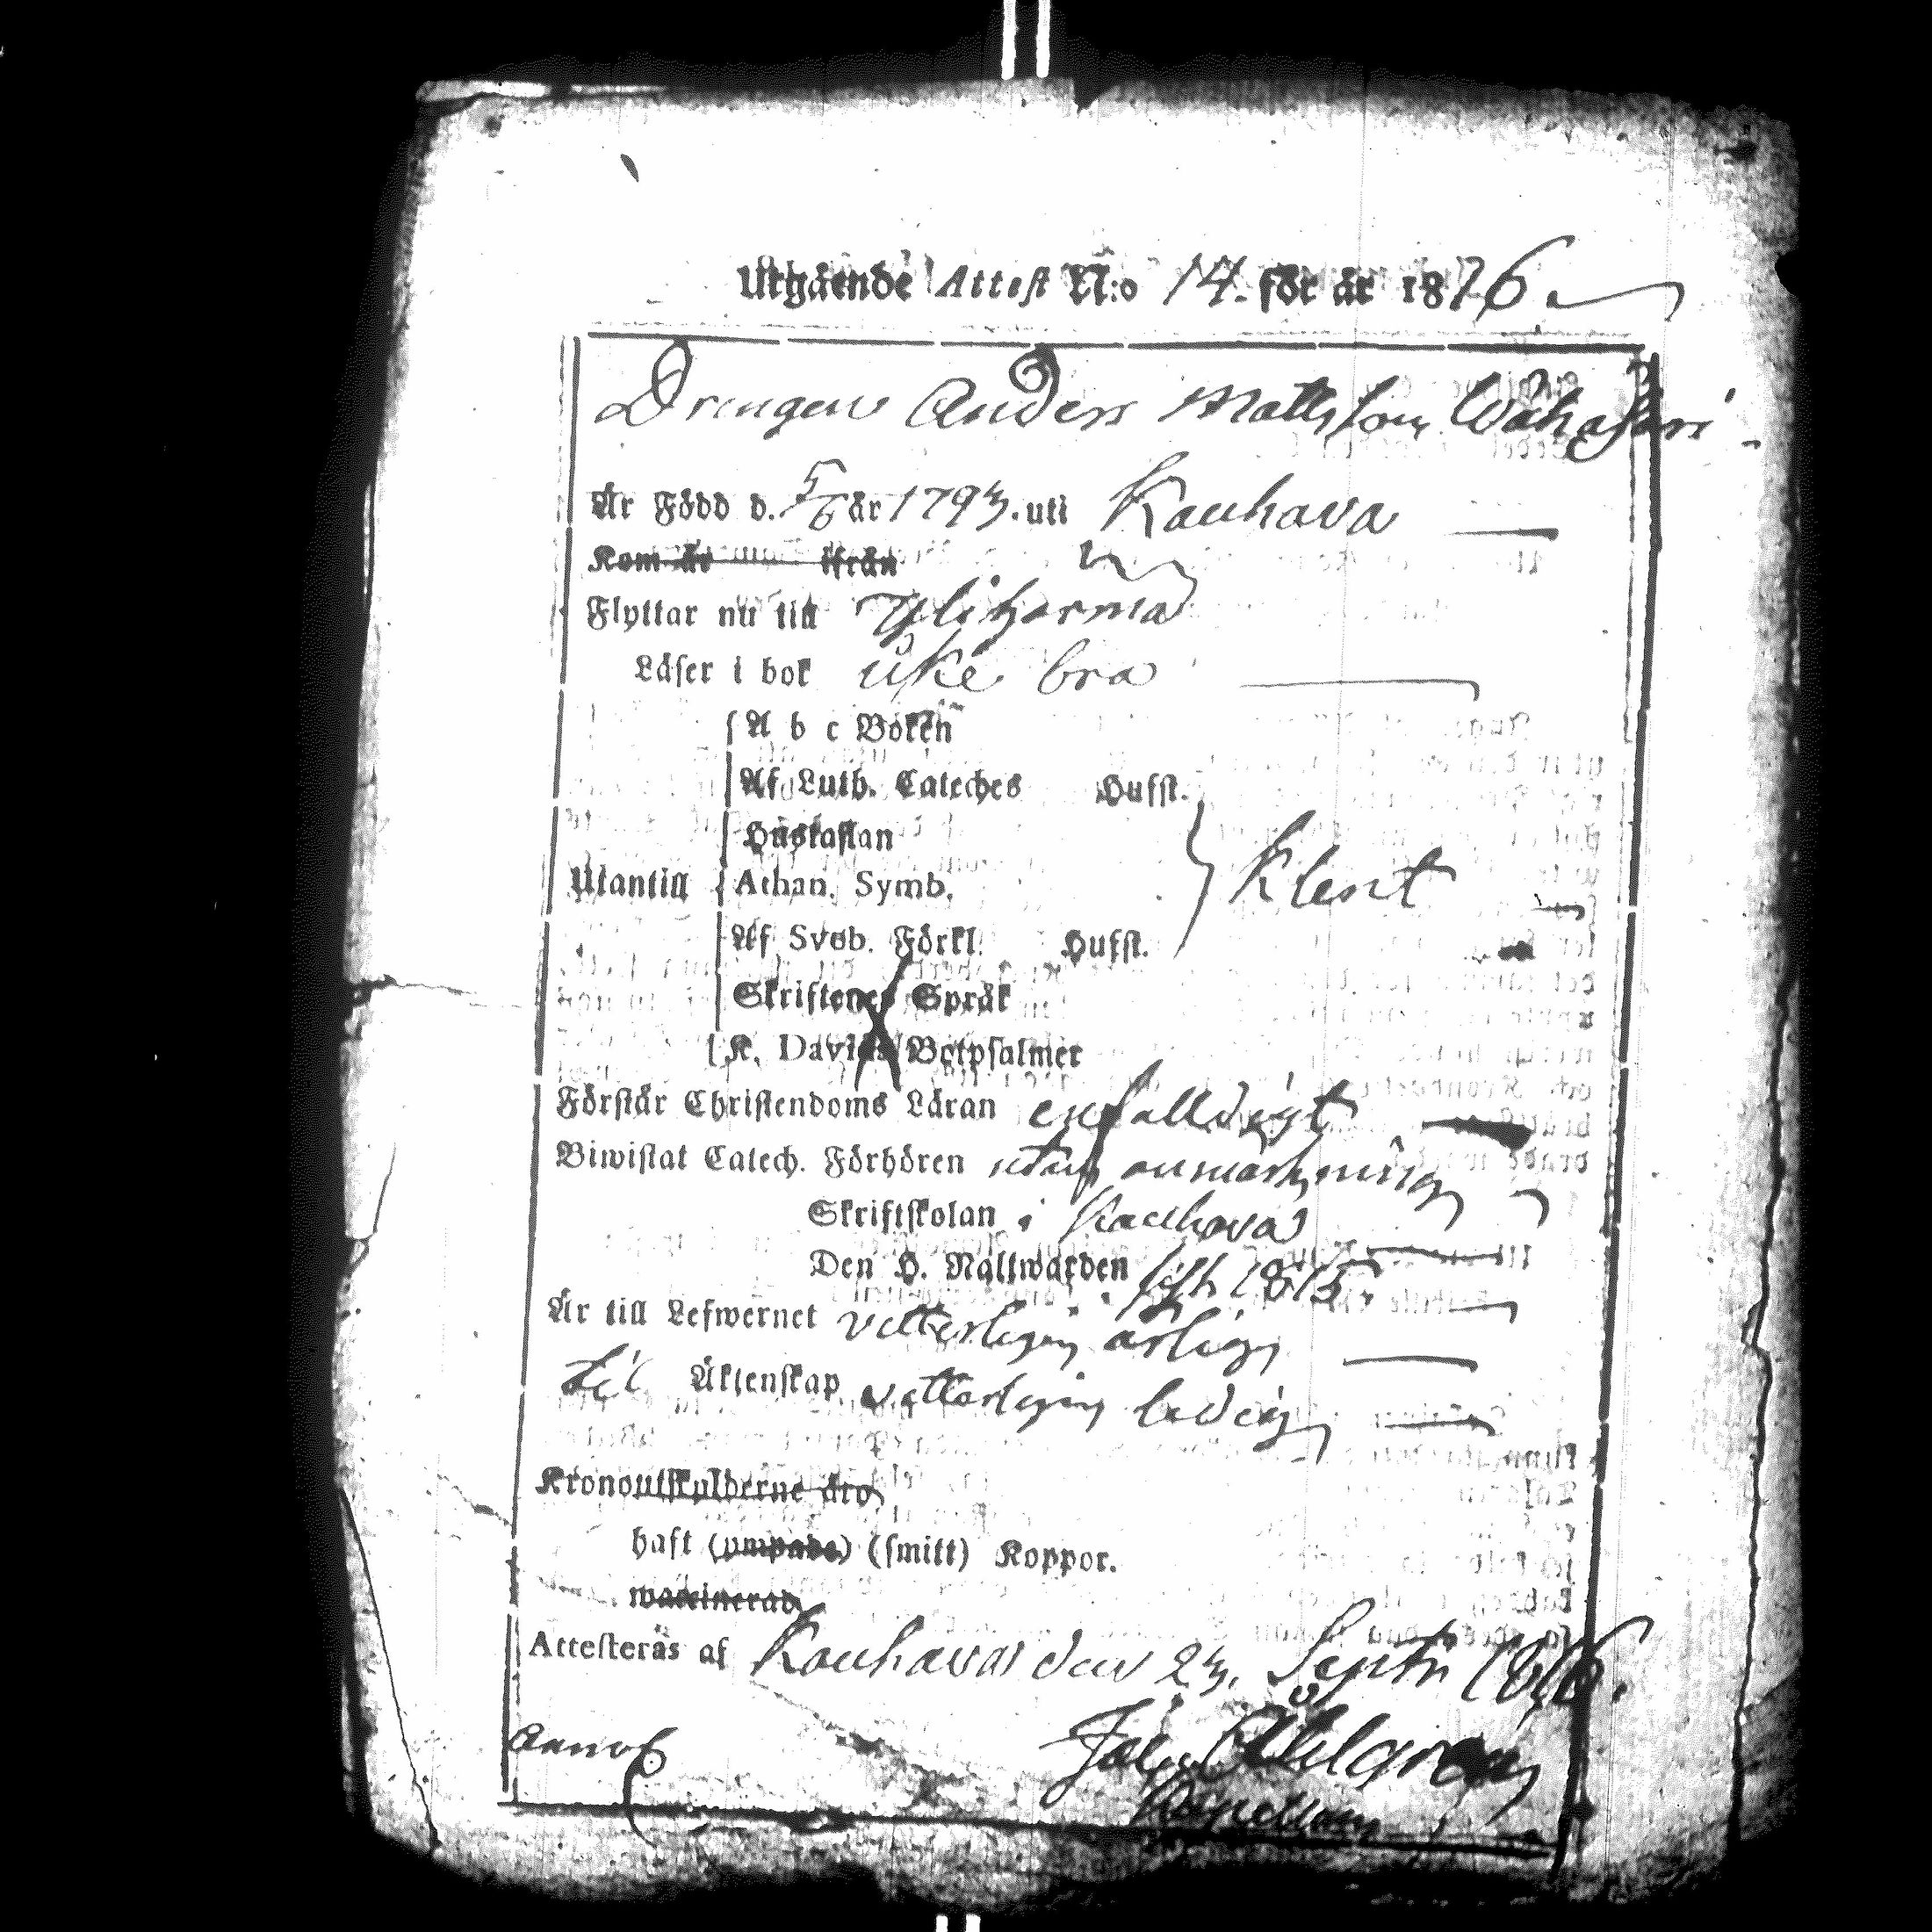 Utgående Attest N:o 14. för år 1816.
Drengen Anders Mattsson Wähajärvi
Är Född d. 5/6 år 1793. uti Kauhava
Kom år ifrån
Flyttar nu till Yliherma
Läser i bok icke bra
A b c Boken
Af Luth. Cateches Hufst.
Hustaflan
Utantill Athan. Symb. Klent
Af Sveb. Förkl. Hufst.
Skriftenes Språk
K. Davids Botpsalmer
Förstår Christendoms Läran enfalldigt
Biwistat Catech. Förhören utan anmärkning
Skriftskolan i Kauhava
Den H. Nattwarden sist 1815.
Är till Lefwernet vetterligen ärlig
til Äktenskap vetterligen ledig
Kronoutskylderne äro
haft (ympade) (smitt) Koppor.
waccinerad
Attesteras af Kauhava den 23. Septr 1816.